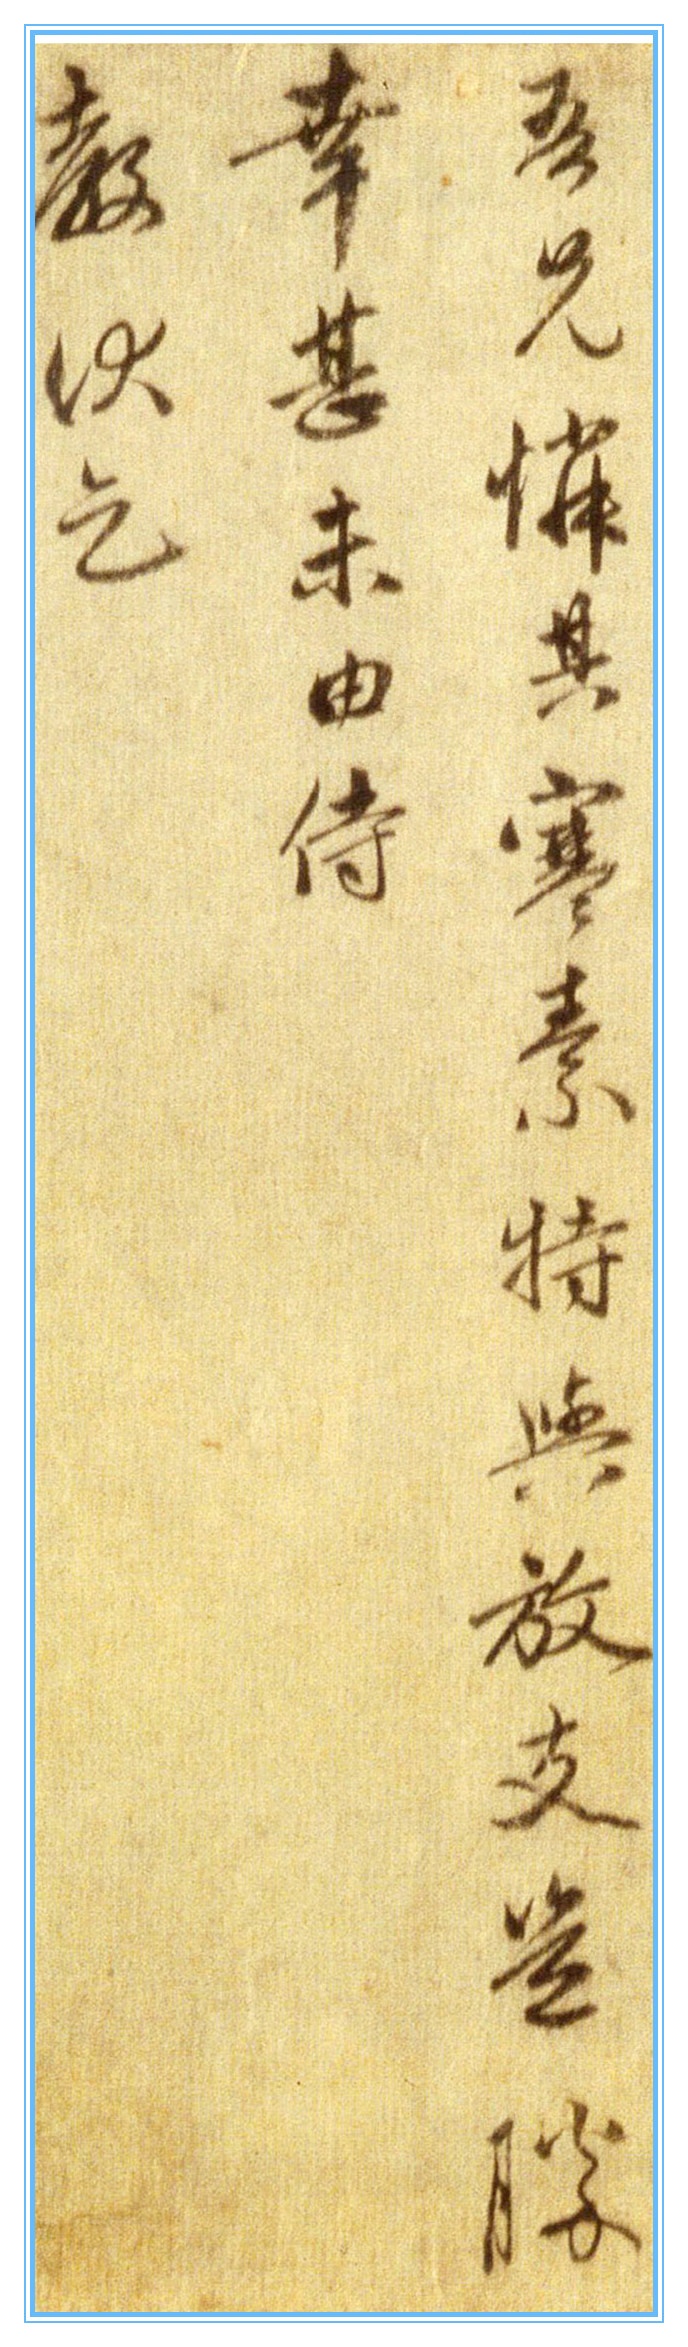 吾兄憐其寒素特與放支豈勝
幸甚未由侍
教伏乞